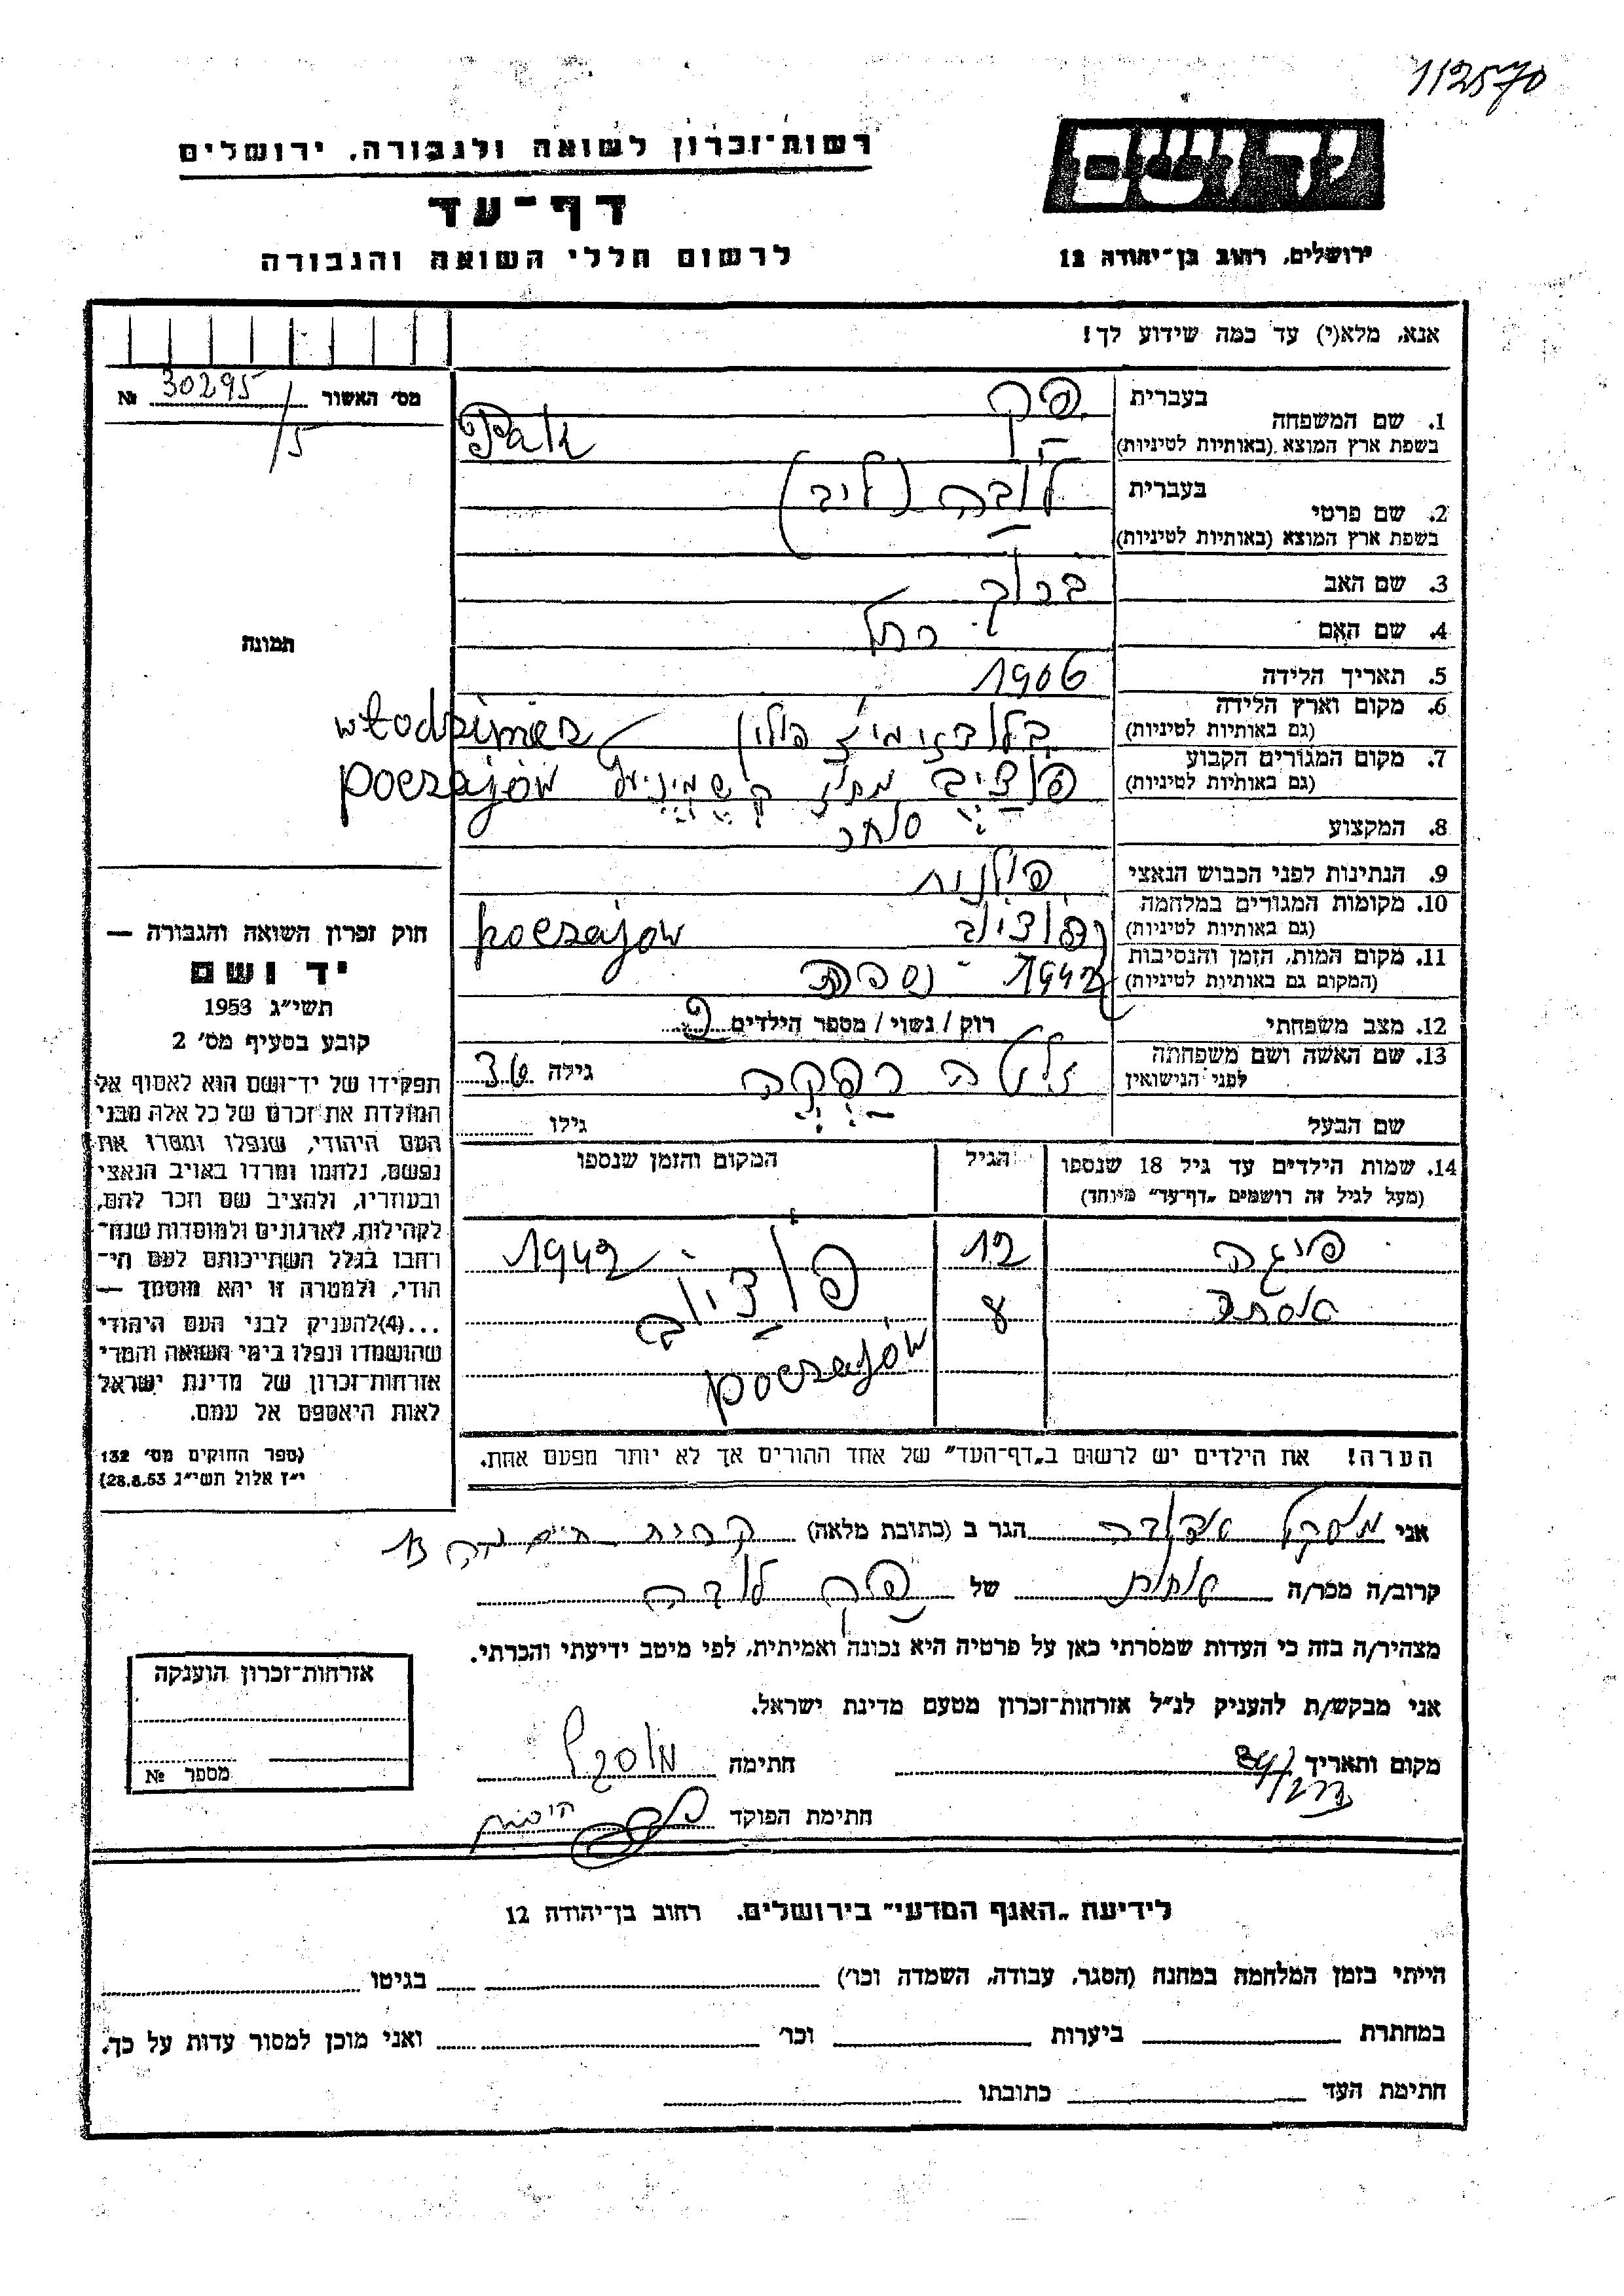 112570
יד ושם
רשות־זכרון לשואה ולגבורה, ירושלים
דף־עד
ירושלים, רחוב בן־יהודה 12
לרשום חללי השואה והגבורה
אנא, מלא(י) עד כמה שידוע לך!
מס׳ האשור 30295/5 №
תמונה
בעברית פק
1. שם המשפחה
בשפת ארץ המוצא (באותיות לטיניות) Pak
בעברית לובה (ליב)
2. שם פרטי
בשפת ארץ המוצא (באותיות לטיניות)
3. שם האב ברוך
4. שם האם רחל
5. תאריך הלידה 1906
6. מקום וארץ הלידה פולין
(גם באותיות לטיניות)
7. מקום המגורים הקבוע
(גם באותיות לטיניות) poczajów
8. המקצוע סוחר
9. הנתינות לפני הכבוש הנאצי פולנית
10. מקומות המגורים במלחמה
(גם באותיות לטיניות) poczajow
11. מקום המות, הזמן והנסיבות
(המקום גם באותיות לטיניות) 1942 -
12. מצב משפחתי רוק / נשוי / מספר הילדים 2
13. שם האשה ושם משפחתה
לפני הנישואין רבקה גילה 36
שם הבעל גילו
14. שמות הילדים עד גיל 18 שנספו הגיל המקום והזמן שנספו
(מעל לגיל זה רושמים „דף־עד״ מיוחד)
פייגה 12 1942
אסתר 8
poczajów
הערה! את הילדים יש לרשום ב„דף־העד״ של אחד ההורים אך לא יותר מפעם אחת.
חוק זכרון השואה והגבורה —
יד ושם
תשי״ג 1953
קובע בסעיף מס׳ 2
תפקידו של יד־ושם הוא לאסוף אל
המולדת את זכרם של כל אלה מבני
העם היהודי, שנפלו ומסרו את
נפשם, נלחמו ומרדו באויב הנאצי
ובעוזריו, ולהציב שם וזכר להם,
לקהילות, לארגונים ולמוסדות שנח־
רחבו בגלל השתייכותם לעם הי־
הודי, ולמטרה זו יהא מוסמך —
...(4)להעניק לבני העם היהודי
שהושמדו ונפלו בימי השואה והמרי
אזרחות־זכרון של מדינת ישראל
לאות היאספם אל עמם.
(ספר החוקים מס׳ 132
י״ז אלול תשי״ג 28.8.53)
אני הגר ב (כתובת מלאה) קרית חיים
קרוב/ה מכר/ה של פק לובה
מצהיר/ה בזה כי העדות שמסרתי כאן על פרטיה היא נכונה ואמיתית, לפי מיטב ידיעתי והכרתי.
אני מבקש/ת להעניק לנ״ל אזרחות־זכרון מטעם מדינת ישראל.
מקום ותאריך חתימה
חתימת הפוקד
אזרחות־זכרון הוענקה
מספר №
לידיעת „האגף המדעי״ בירושלים. רחוב בן־יהודה 12
הייתי בזמן המלחמה במחנה (הסגר, עבודה, השמדה וכו׳) בגיטו
במחתרת ביערות וכו׳ ואני מוכן למסור עדות על כך.
חתימת העד כתובתו